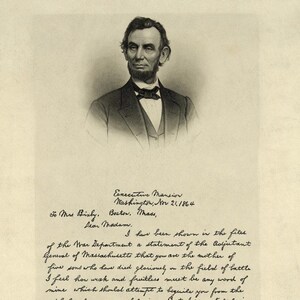 Executive Mansion
Washington, Nov 21, 1864
To Mrs Bixby, Boston, Mass,
Dear Madam,
I have been shown in the files
of the War Department a statement of the Adjutant
General of Massachusetts that you are the mother of
five sons who have died gloriously on the field of battle
I feel how weak and fruitless must be any words of
mine which should attempt to beguile you from the